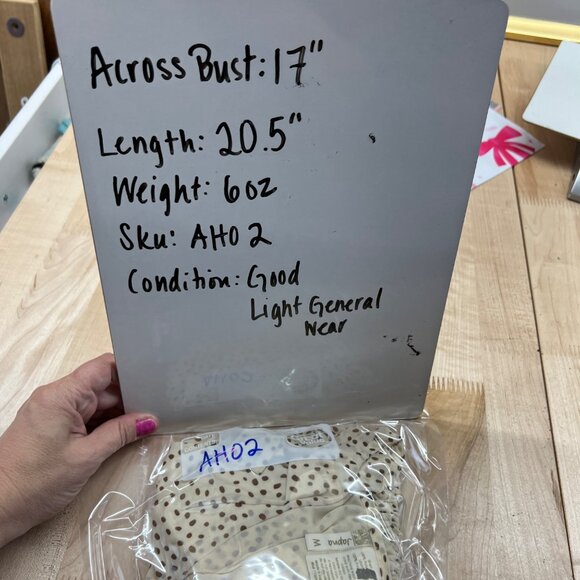 Across Bust: 17"
Length: 20.5"
Weight: 6oz
Sku: AH02
Condition: Good
Light General
Wear
AH02
Japna
M